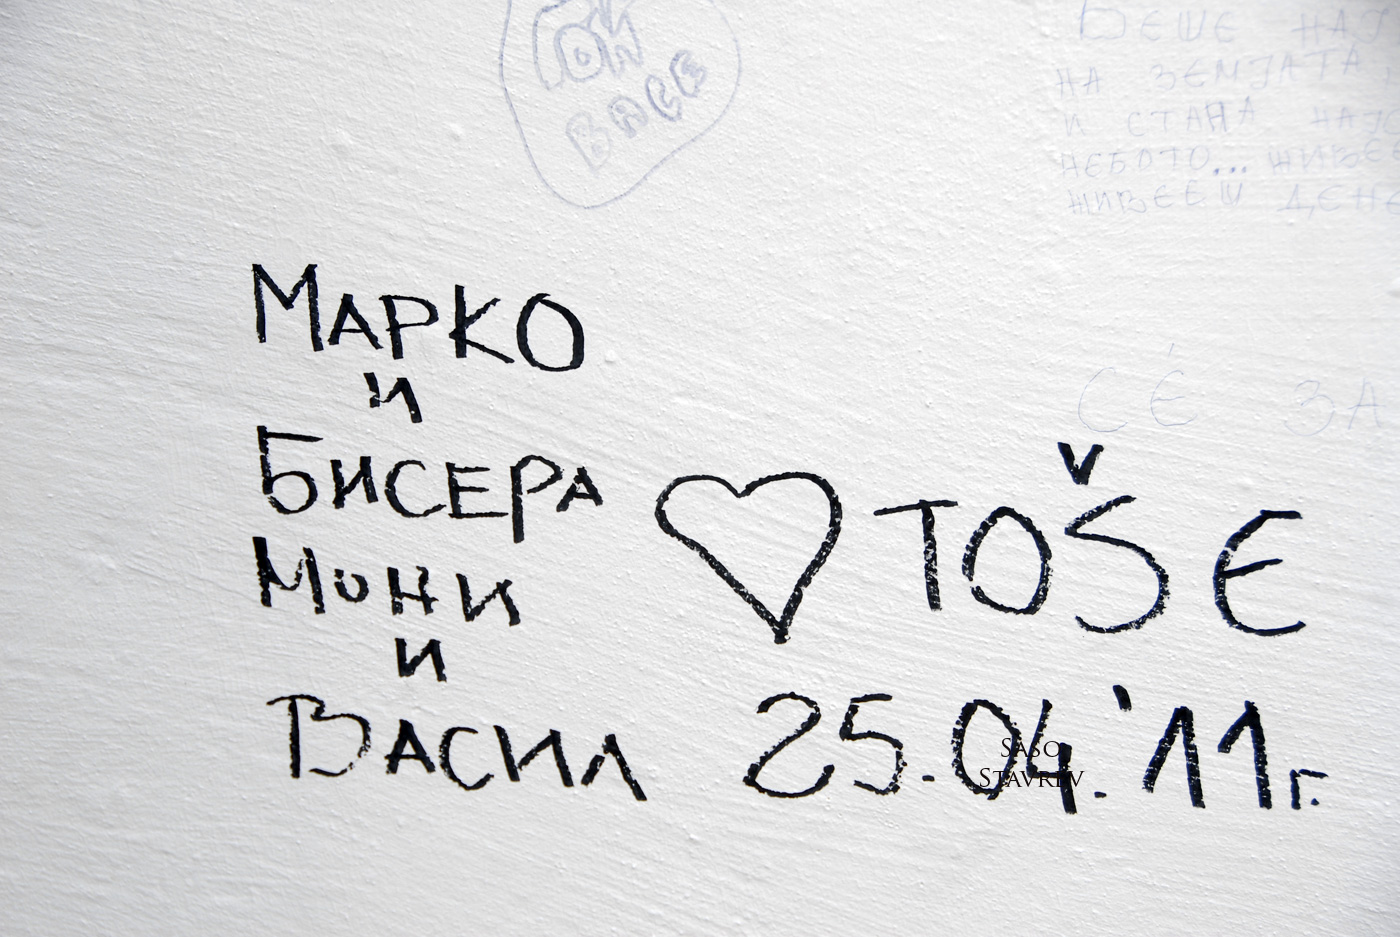 БЕШЕ НАЈ
НА ЗЕМЈАТА
И СТАНА НАЈ
НЕБОТО... ЖИВЕЕ
ЖИВЕЕШ ДЕНЕ
СЀ ЗА
МАРКО
и
БИСЕРА
МОНИ
и
ВАСИЛ
♡ TOŠE
25.04.'11г.
SASO
STAVREV